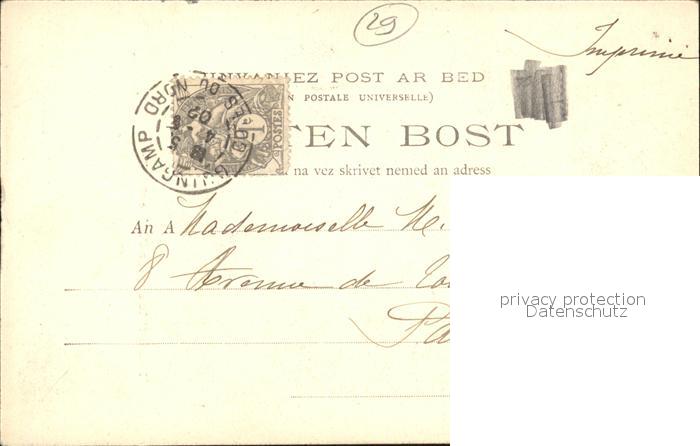 29
Imprimé
UNVANIEZ POST AR BED
POSTALE UNIVERSELLE)
TEN BOST
na vez skrivet nemed an adress
GUINGAMP
CÔTES DU NORD
02
1
POSTES
An A Mademoiselle M.
8 Avenue de
Pa
privacy protection
Datenschutz